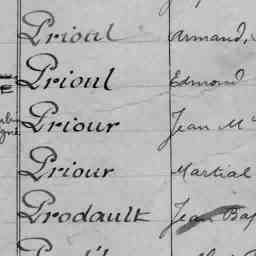 Prioul Armand,
Prioul Edmond
Priour Jean M
Priour Martial
Prodault Jean Bap